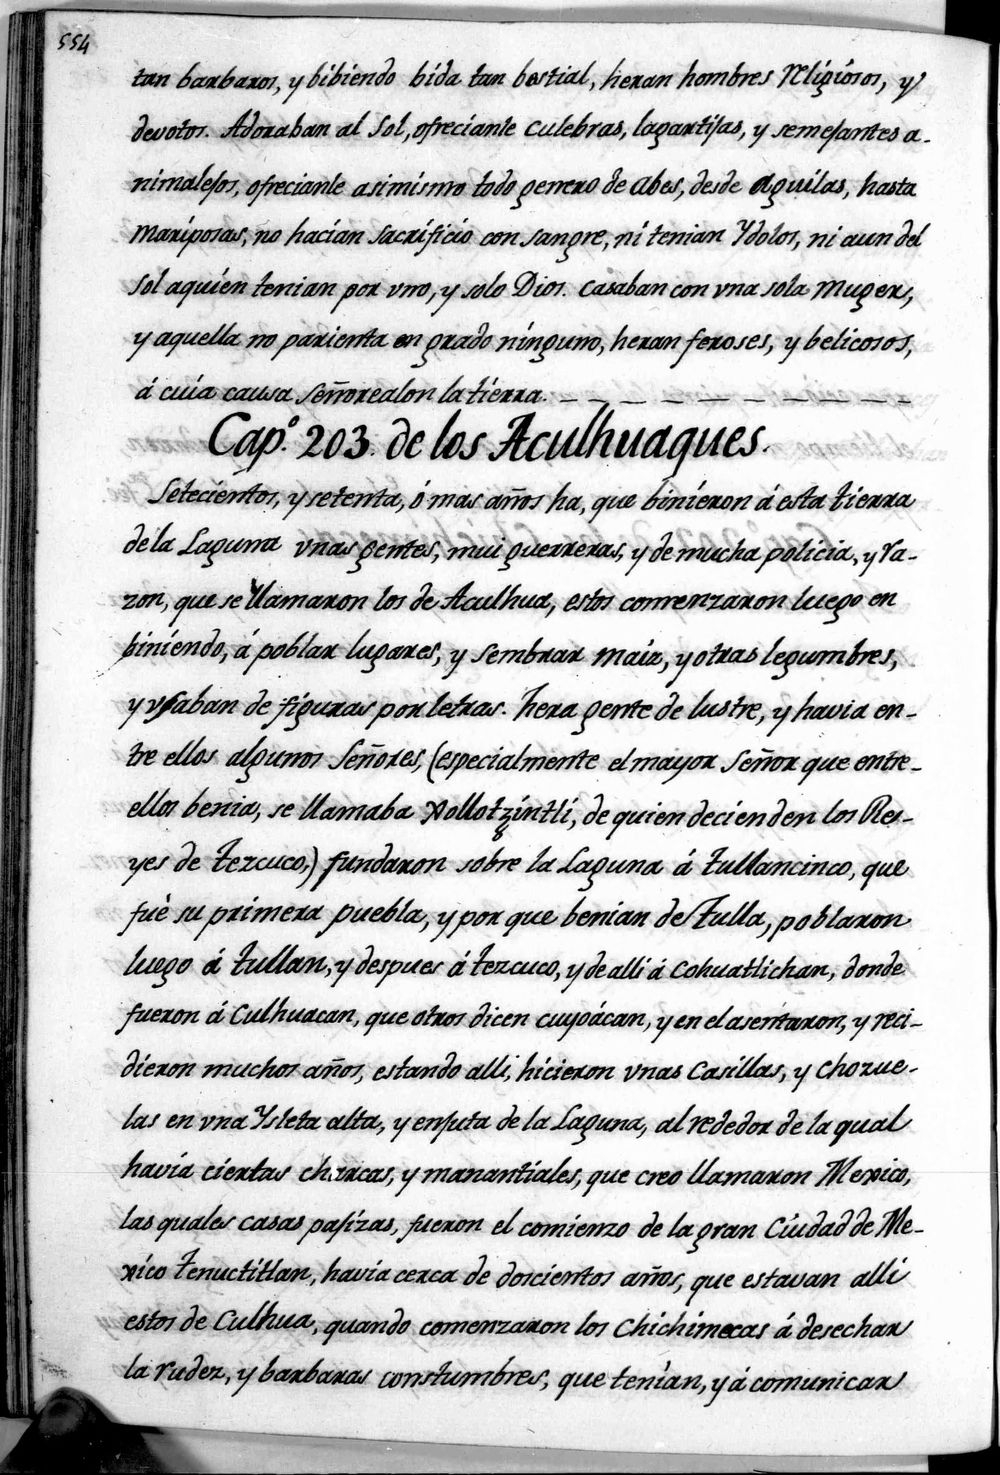 554
tan barbaros, y bibiendo bida tan bestial, heran hombres religiosos, y
devotos. Adoraban al Sol, ofrecianle culebras, lagartijas, y semejantes a-
nimalejos, ofrecianle asimismo todo genero de abes, desde aguilas, hasta
mariposas, no hacian sacrificio con sangre, ni tenian Ydolos, ni aun del
sol aquien tenian por vno, y solo Dios. Casaban con vna sola muger,
y aquella no parienta en grado ninguno, heran feroses, y belicosos,
á cuia causa señorealon la tierra.
Capº. 203. de los Aculhuaques.
Setecientos, y setenta, ó mas años ha, que binieron á esta tierra
de la Laguna vnas gentes, mui guerreras, y de mucha policia, y ra-
zon, que se llamaron los de Aculhua, estos comenzaron luego en
biniendo, á poblar lugares, y sembrar maiz, y otras legumbres,
y vsaban de figuras por letras. hera gente de lustre, y havia en-
tre ellos algunos Señores, (especialmente el mayor Señor que entre-
ellos benia, se llamaba Xollotzintli, de quien decienden los Re-
yes de tezcuco,) fundaron sobre la Laguna á tullancinco, que
fué su primera puebla, y por que benian de Tulla, poblaron
luego á tullan, y despues á tezcuco, y de alli á Cohuatlichan, donde
fueron á Culhuacan, que otros dicen cuyoácan, y en el asentaron, y reci-
dieron muchos años, estando alli, hicieron vnas Casillas, y chozue-
las en vna Ysleta alta, y enjuta de la Laguna, al rededor de la qual
havia ciertas charcas, y manantiales, que creo llamaron Mexico,
las quales casas pajizas, fueron el comienzo de la gran Ciudad de Me-
xico Tenuctitlan, havia cerca de doscientos años, que estavan alli
estos de Culhua, quando comenzaron los Chichimecas á desechar
la rudez, y barbaras constumbres, que tenian, y á comunicar